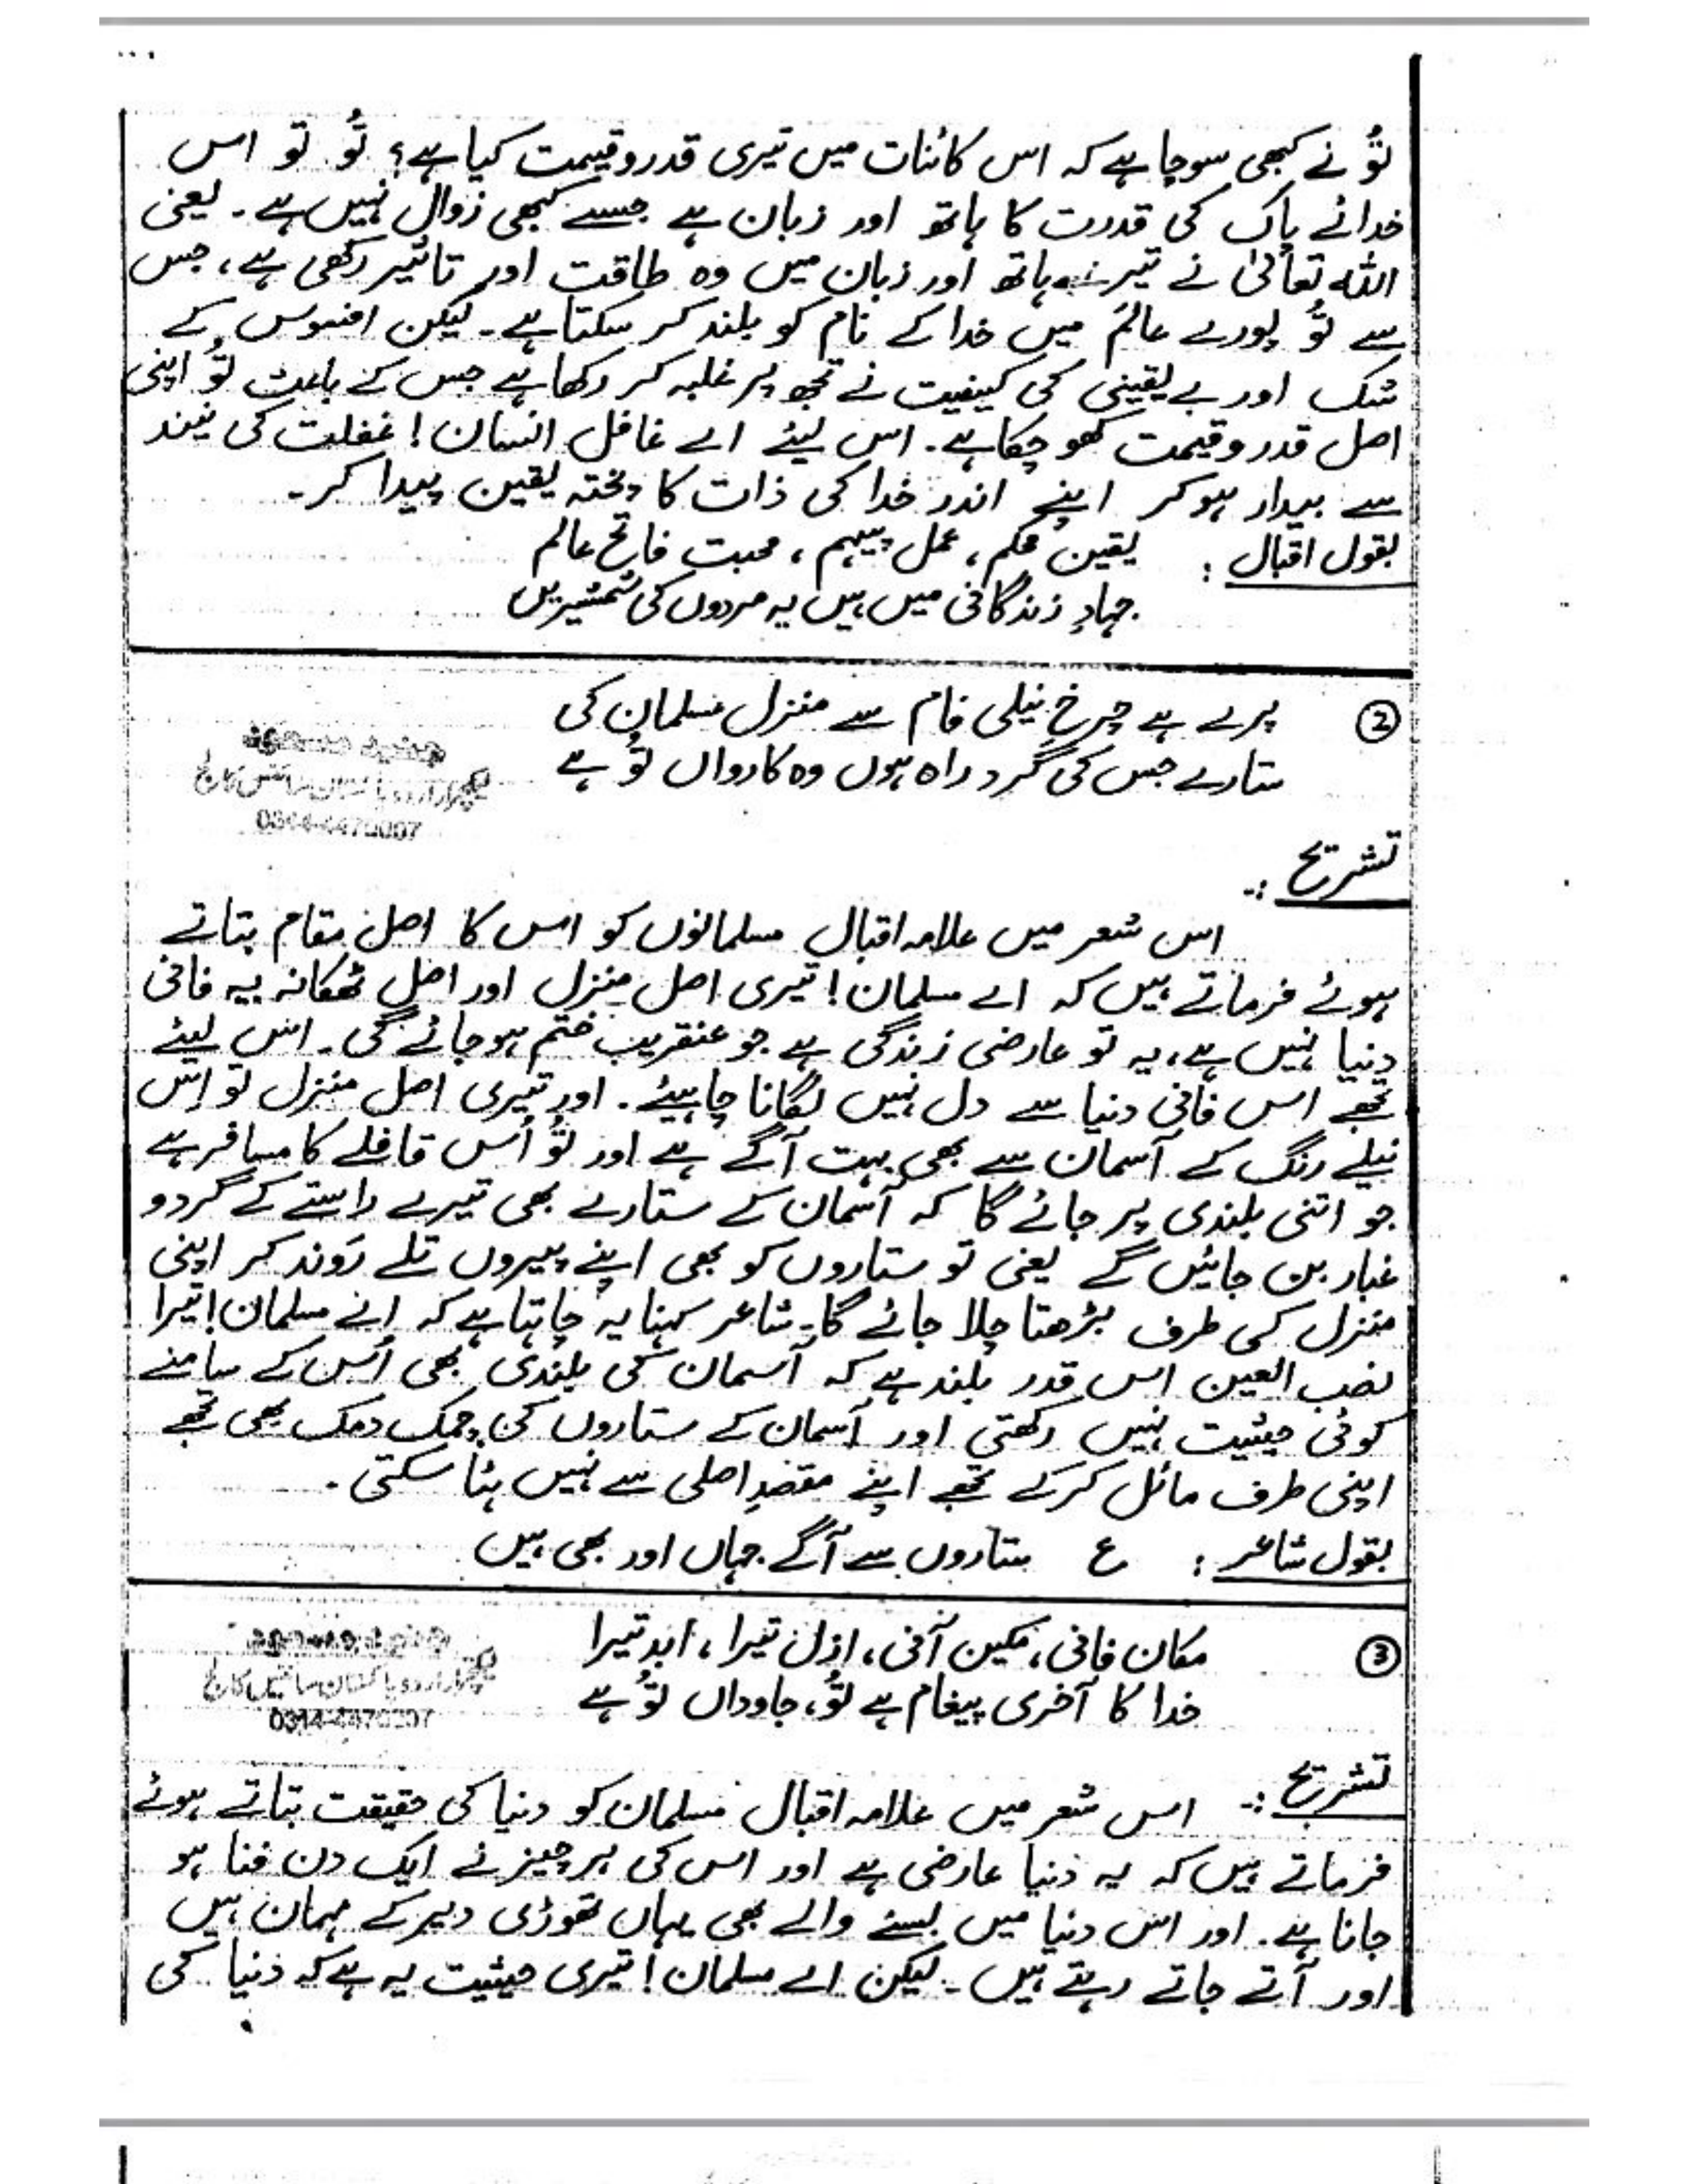 تُو نے کبھی سوچا ہے کہ اس کائنات میں تیری قدروقیمت کیا ہے؟ تُو تو اس
خدائے پاک کی قدرت کا ہاتھ اور زبان ہے جسے کبھی زوال نہیں ہے۔ یعنی
اللہ تعالیٰ نے تیرے ہاتھ اور زبان میں وہ طاقت اور تاثیر رکھی ہے، جس
سے تُو پورے عالم میں خدا کے نام کو بلند کر سکتا ہے۔ لیکن افسوس کے
شک اور بے یقینی کی کیفیت نے تجھ پر غلبہ کر رکھا ہے جس کے باعث تُو اپنی
اصل قدر وقیمت کھو چکا ہے۔ اس لیئے اے غافل انسان! غفلت کی نیند
سے بیدار ہوکر اپنے اندر خدا کی ذات کا پختہ یقین پیدا کر۔
بقول اقبال : یقین محکم، عمل پیہم، محبت فاتح عالم
جہادِ زندگانی میں ہیں یہ مردوں کی شمشیریں
② پرے ہے چرخِ نیلی فام سے منزل مسلمان کی
ستارے جس کی گرد راہ ہوں وہ کارواں تُو ہے
لیکچرار اردو پاکستان سائنس کالج
تشریح :-
اس شعر میں علامہ اقبال مسلمانوں کو اس کا اصل مقام بتاتے
ہوئے فرماتے ہیں کہ اے مسلمان! تیری اصل منزل اور اصل ٹھکانہ یہ فانی
دنیا نہیں ہے، یہ تو عارضی زندگی ہے جو عنقریب ختم ہوجائے گی۔ اس لیئے
تجھے اس فانی دنیا سے دل نہیں لگانا چاہیئے۔ اور تیری اصل منزل تو اِس
نیلے رنگ کے آسمان سے بھی بہت آگے ہے اور تُو اُس قافلے کا مسافر ہے
جو اتنی بلندی پر جائے گا کہ آسمان کے ستارے بھی تیرے راستے کے گرد و
غبار بن جائیں گے یعنی تو ستاروں کو بھی اپنے پیروں تلے رَوند کر اپنی
منزل کی طرف بڑھتا چلا جائے گا۔ شاعر کہنا یہ چاہتا ہے کہ اے مسلمان! تیرا
نصب العین اس قدر بلند ہے کہ آسمان کی بلندی بھی اُس کے سامنے
کوئی حیثیت نہیں رکھتی اور آسمان کے ستاروں کی چمک دمک بھی تجھے
اپنی طرف مائل کرکے تجھے اپنے مقصدِ اصلی سے نہیں ہٹا سکتی۔
بقول شاعر : ع ستاروں سے آگے جہاں اور بھی ہیں
③ مکان فانی، مکین آنی، ازل تیرا، ابد تیرا
خدا کا آخری پیغام ہے تُو، جاوداں تُو ہے
لیکچرار اردو پاکستان سائنس کالج
تشریح :- اس شعر میں علامہ اقبال مسلمان کو دنیا کی حقیقت بتاتے ہوئے
فرماتے ہیں کہ یہ دنیا عارضی ہے اور اس کی ہر چیز نے ایک دن فنا ہو
جانا ہے۔ اور اس دنیا میں بسنے والے بھی یہاں تھوڑی دیر کے مہمان ہیں
اور آتے جاتے رہتے ہیں۔ لیکن اے مسلمان! تیری حیثیت یہ ہے کہ دنیا کی